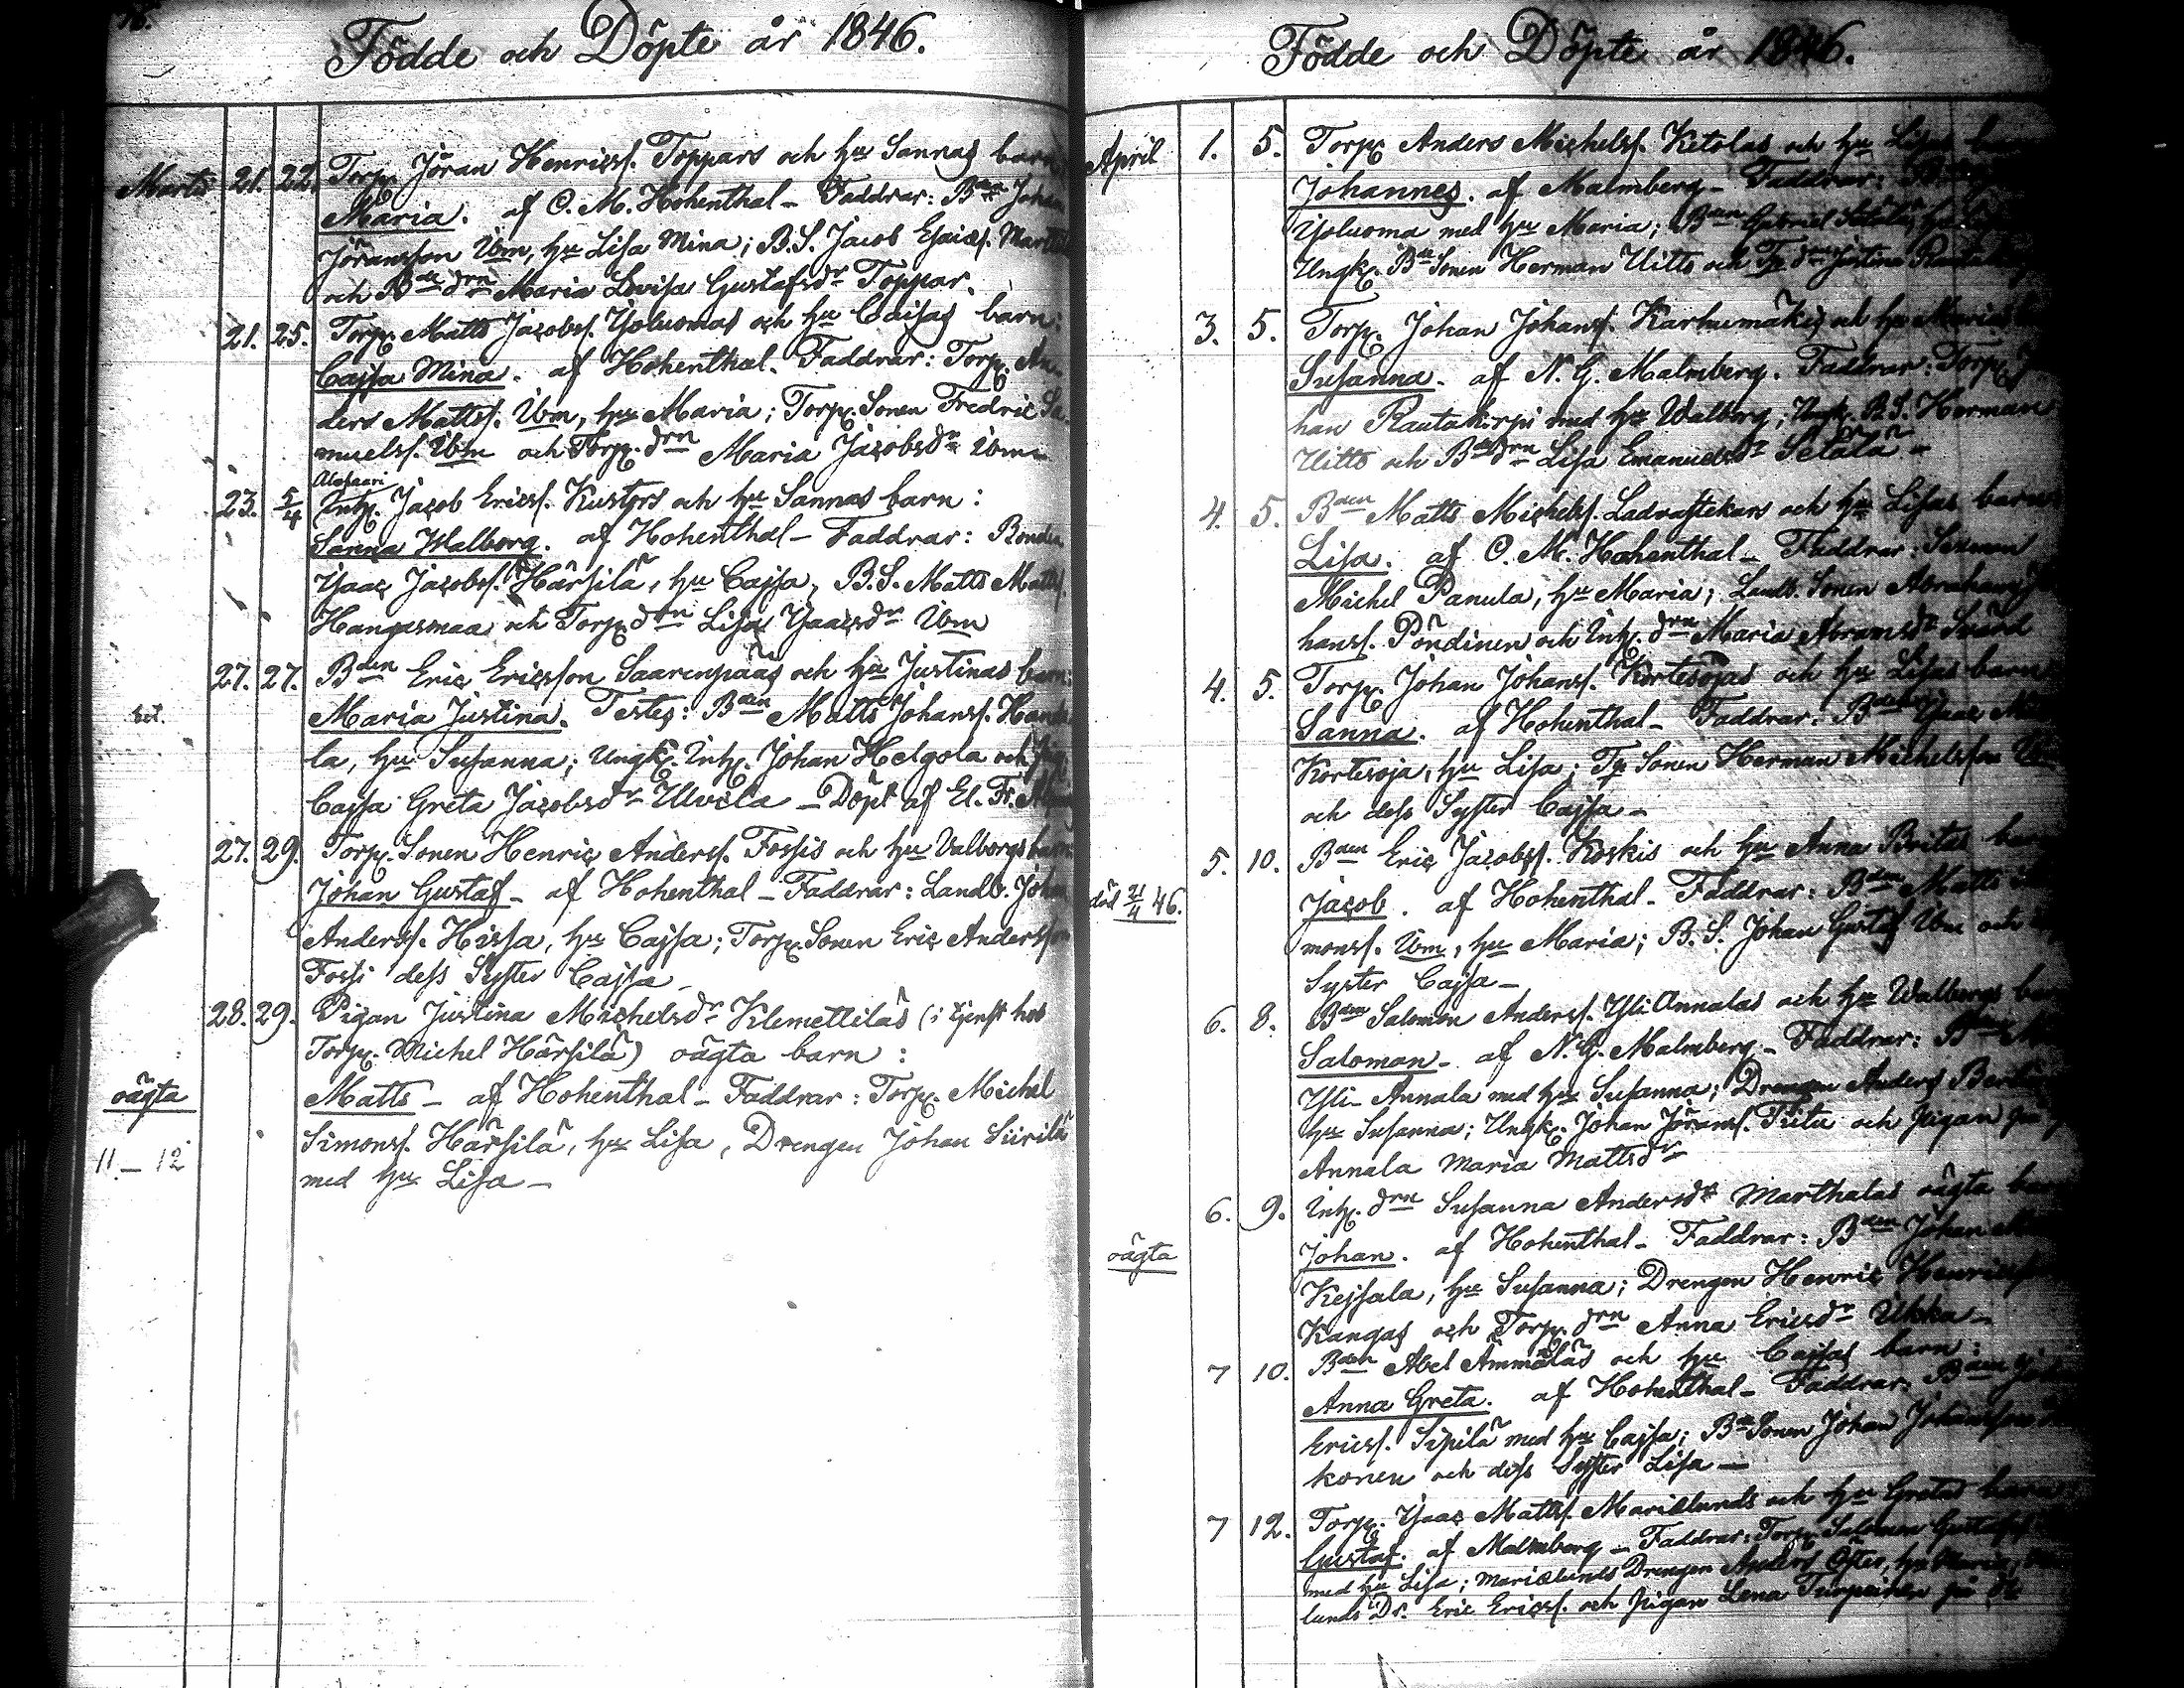 Födde och Döpte år 1846.
Martii 21. 22. Torp. Jöran Henricss. Toppars och hu Sannas barn
Maria. af C. M. Hohenthal - Faddrar: Bden Johan
Jöransson Ibm, hu Lisa Mina; B.S. Jacob Esaiæs.
och Bde drn Maria Lovisa Gustafsdr Toppar.
21. 25. Torp. Matts Jacobss. Yoluomas och hu Caisas barn:
Cajsa Mina. af Hohenthal. Faddrar: Torp. An-
ders Mattss. Ibm, hu Maria; Torp. Sonen Fredric Sa-
muelss. Ibm och Torp. drn Maria Jacobsdr Ibm -
Alasaari
23. 5/4 Inh. Jacob Ericss. Kustors och hu Sannas barn:
Sanna Walborg. af Hohenthal - Faddrar: Bonden
Ysaac Jacobss. Härsilä, hu Cajsa, B.S. Matts Mattss.
Hangasmaa och Torp. drn Lisa Ysaacsdr Ibm
27. 27. Bden Eric Ericsson Saarenpääs och hu Justinas barn:
Maria Justina. Testes: Bden Matts Johanss.
la, hu Susanna; Ungk. Inh. Johan Helgola och Pig.
Cajsa Greta Jacobsdr Ulvila - Döpt af El. Fr.
27. 29. Torp. Sonen Henric Anderss. Fossis och hu Valborgs barn
Johan Gustaf - af Hohenthal - Faddrar: Landb. Johan
Anderss. Hissa, hu Cajsa; Torp. Sonen Eric Andersson
Fossi dess Syster Cajsa -
28. 29. Pigan Justina Michelsdr Klemettiläs (i tjenst hos
Torp. Michel Härsilä) oägta barn:
oägta Matts - af Hohenthal - Faddrar: Torp. Michel
Simonss. Härsilä, hu Lisa, Drengen Johan Siirilä
11 - 12 med hu Lisa -
Födde och Döpte år 1846.
April 1. 5. Torp. Anders Michelss. Ketolas och hu Lisas
Johannes. af Malmberg - Faddrar:
Yoluoma med hu Maria; Bden Gabriel
Ungk. Bde Sonen Herman Uitto och Tp. drn Justina
3. 5. Torp. Johan Johanss. Karhumäkis och hu Marias
Susanna. af N. G. Malmberg. Faddrar: Torp. Jo-
han Rautakirpi med hu Walborg; Ungk. B.S. Herman
Uitto och Bde drn Lisa Emanuelsdr Setälä -
4. 5. Bden Matts Michelss. Ladvastekars och hu Lisas barn
Lisa. af C. M. Hohenthal - Faddrar: Sexman
Michel Panula, hu Maria; Landb. Sonen Abraham Jo-
hanss. Pöndinen och Inh. drn Maria Abramsdr Svärd
4. 5. Torp. Johan Johanss. Kortesojas och hu Lisas barn
Sanna. af Hohenthal - Faddrar: Bden Ysaac
Kortesoja, hu Lisa; Tp Sonen Herman Michelsson Ibm
och dess Syster Cajsa -
5. 10. Bden Eric Jacobss. Koskis och hu Anna Britas barn
död 21/4 46. Jacob. af Hohenthal - Faddrar: Bden Matts Si-
monss. Ibm, hu Maria; B.S. Johan Gustaf Ibm och
Syster Cajsa -
6. 8. Bden Salomon Anderss. Yli Annalas och hu Walborgs barn
Saloman - af N. G. Malmberg - Faddrar: Bden
Yli-Annala med hu Susanna; Drengen Anders
hu Susanna; Ungk. Johan Jöranss. Pitu och Pigan på
Annala Maria Mattsdr
6. 9. Inh. drn Susanna Andersdr Marthalas oägta barn
oägta Johan. af Hohenthal - Faddrar: Bden Johan
Kejsala, hu Susanna; Drengen Henric Henricss.
Kangas och Torp. drn Anna Ericsdr Ukka -
7 10. Bden Abel Ämmäläs och hu Cajsas barn:
Anna Greta. af Hohenthal - Faddrar: Bden
Ericss. Sipilä med hu Cajsa; Bde Sonen Johan Johansson
konen och dess Syster Lisa -
7 12. Torp. Ysaac Mattss. Mariælunds och hu Gretas barn
Gustaf. af Malmberg - Faddrar: Torp. Salomon Gustafss.
med hu Lisa; Mariælunds Drengen Anders Öster, hu Maria;
lunds Dr. Eric Ericss. och Pigan Lena Turpeinen på